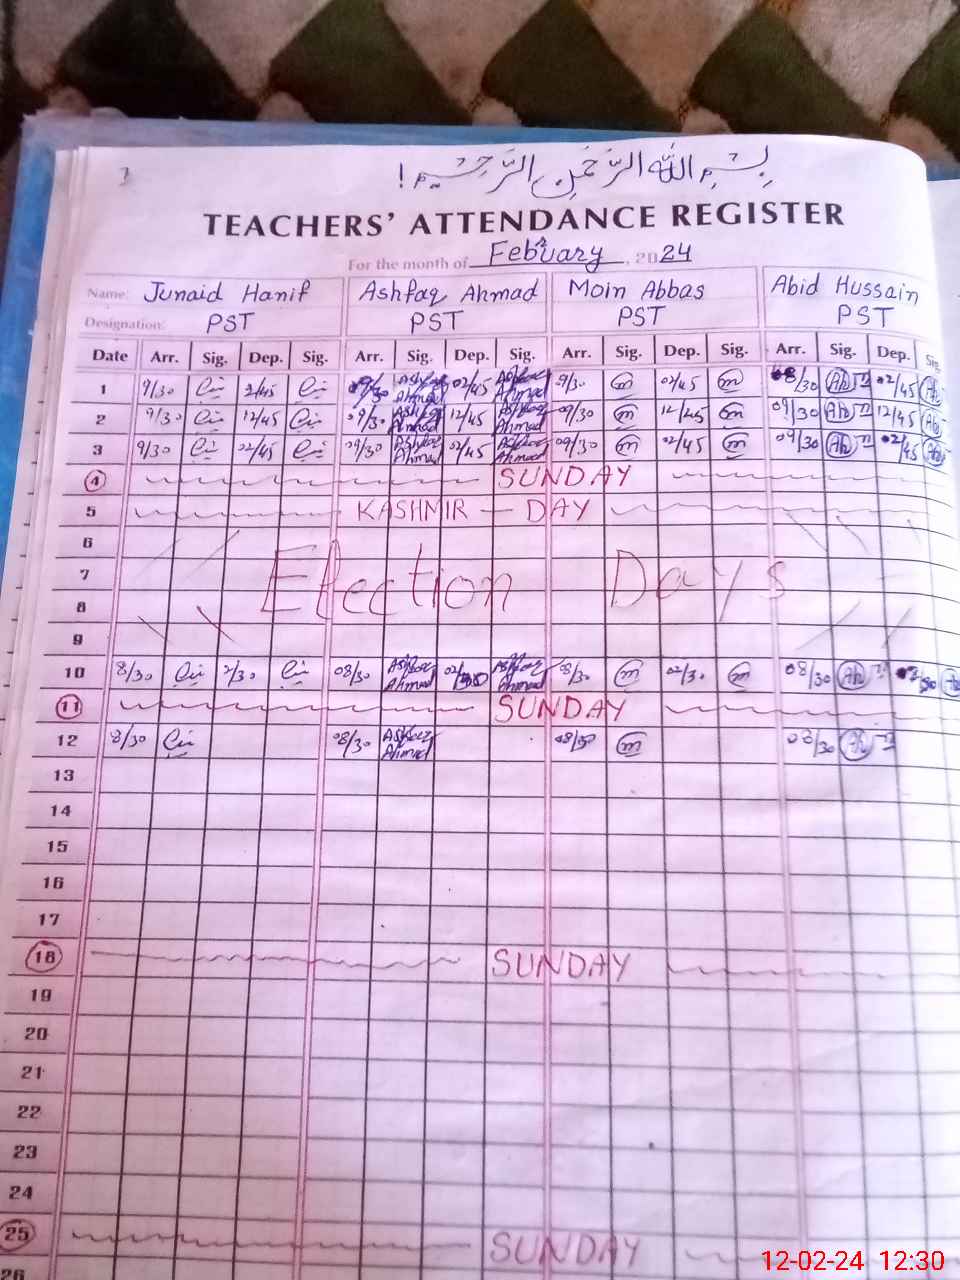 بِسْمِ اللّٰہِ الرَّحْمٰنِ الرَّحِیْمِ !
TEACHERS' ATTENDANCE REGISTER
For the month of February, 2024
Name: Junaid Hanif Ashfaq Ahmad Moin Abbas Abid Hussain
Designation: PST PST PST PST
Date Arr. Sig. Dep. Sig. Arr. Sig. Dep. Sig. Arr. Sig. Dep. Sig. Arr. Sig. Dep. Sig.
1 9/30 2/45 09/30 Ashfaq Ahmad 02/45 Ashfaq Ahmad 09/30 m 02/45 m 08/30 Ab 02/45 Ab
2 9/30 12/45 09/30 Ashfaq Ahmad 12/45 Ashfaq Ahmad 09/30 m 12/45 m 09/30 Ab 12/45 Ab
3 9/30 02/45 09/30 Ashfaq Ahmad 02/45 Ashfaq Ahmad 09/30 m 02/45 m 09/30 Ab 02/45 Ab
4 SUNDAY
5 KASHMIR — DAY
6
7 Election Days
8
9
10 8/30 2/30 08/30 Ashfaq Ahmad 02/30 Ashfaq Ahmad 08/30 m 02/30 m 08/30 Ab 02/30 Ab
11 SUNDAY
12 8/30 08/30 Ashfaq Ahmad 08/30 m 08/30 Ab
13
14
15
16
17
18 SUNDAY
19
20
21
22
23
24
25 SUNDAY
26
12-02-24 12:30